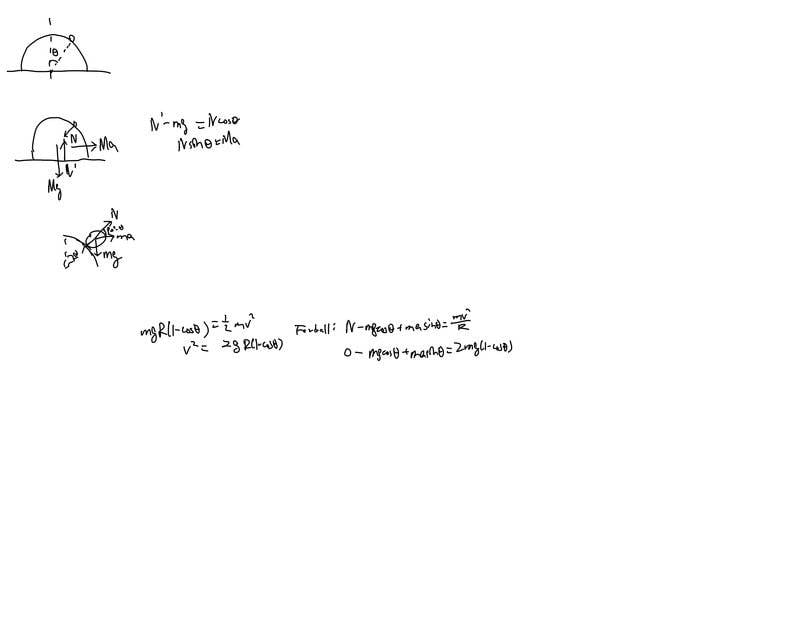 θ
N' - mg = N cosθ
N sin θ = Ma
N
Ma
N'
Mg
N
ma
mg
mgR(1-cosθ) = 1/2 mv²
v² = 2gR(1-cosθ)
For ball: N - mg cosθ + ma sinθ = mv²/R
0 - mg cosθ + ma sinθ = 2mg(1-cosθ)